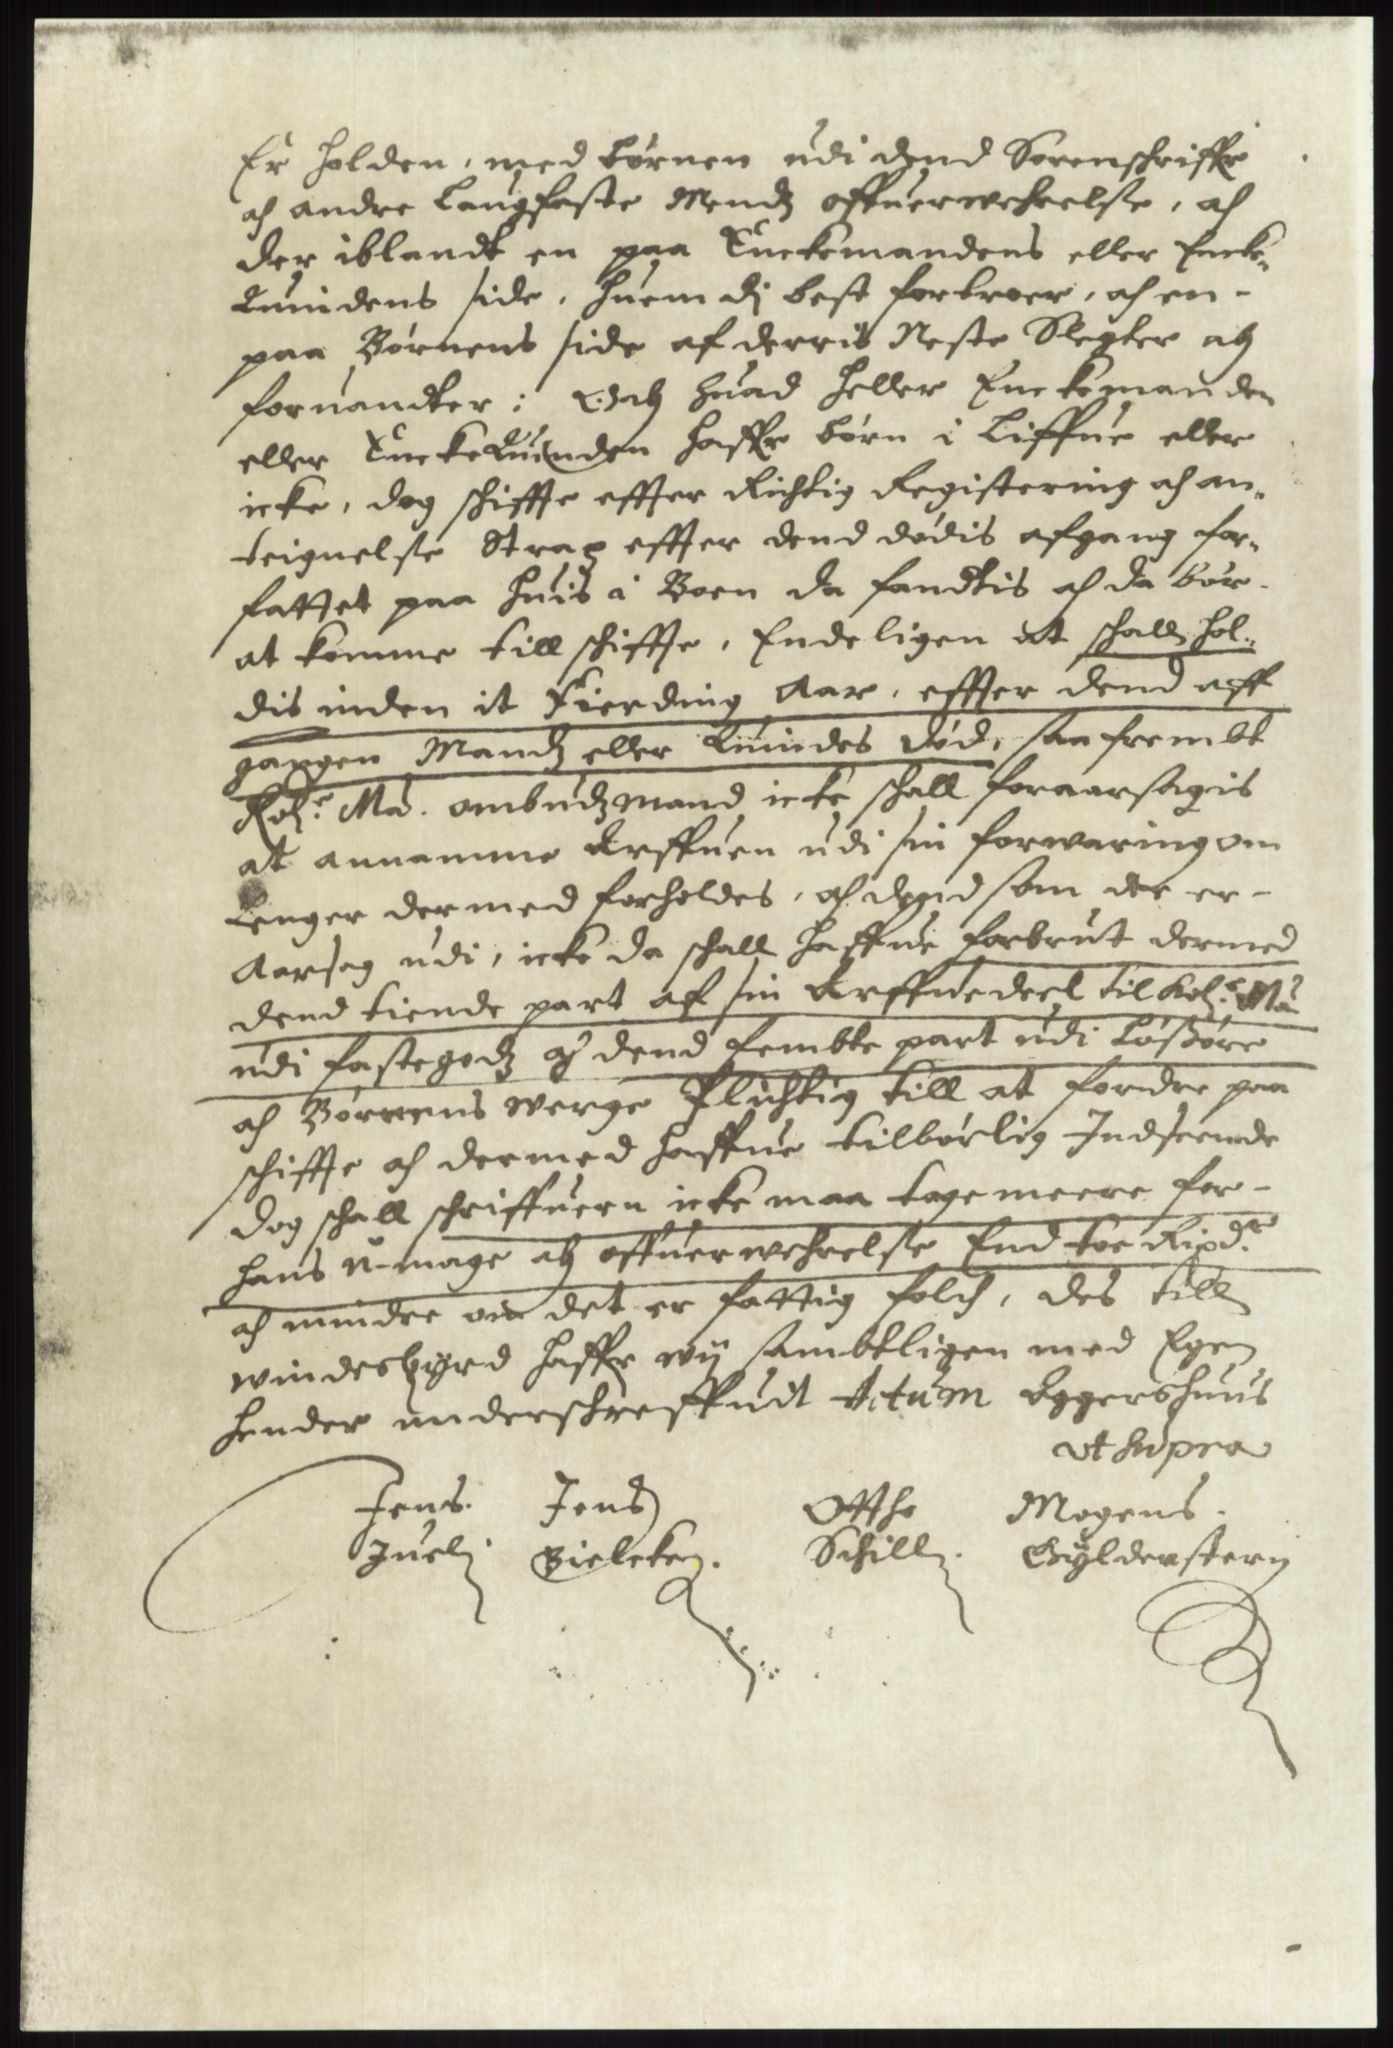 Er holden, med børnen udi dend Sorenschriffr
och andre Laugfaste Mendz offuerwehrelse, och
der iblandt en paa Enckemandens eller Encke-
Quindens side, huem dj best fortroer, och en-
paa Børnens side af derris Neste Slegter och
foruandter: Och huad heller Enckemanden
eller EnckeQuinden haffr børn i Liffue eller
icke, dog schiffte effter Richtig Registering och an-
teignelse Strax effter dend dødis afgang for-
fattet paa huis i Boen da fandtis och da bør
at komme till schiffte, Endeligen at schall hol-
dis inden it Fierding Aar, effter dend aff
gangen Mandz eller Quindes død, saa frembt
Kon: Ma: ombudzmand icke schall foraarsagis
at annamme Arffuen udi sin forwaring om
Lenger dermed forholdes, och dend som der er-
Aarsag udi, icke da schall haffue forbrut dermed
dend tiende part af sin Arffuedeel til Kon: Ma
udi fastegodz och dend fembte part udi Løsøre
och Børnens werge Plichtig till at fordre paa
schiffte och dermed haffue tilbørlig Indseende
dog schall schriffueren icke maa tage meere for-
hans u-mage och offuerwehrelse End toe Rixdr
och mindre om det er fattig folch, des till
windesbyrd haffr wij sambtligen med Egen
hender underschreffuit Actum Aggershuus
ut supra
Jens Jens Otthe Mogens
Juel Bielcke Schill Gyldenstern